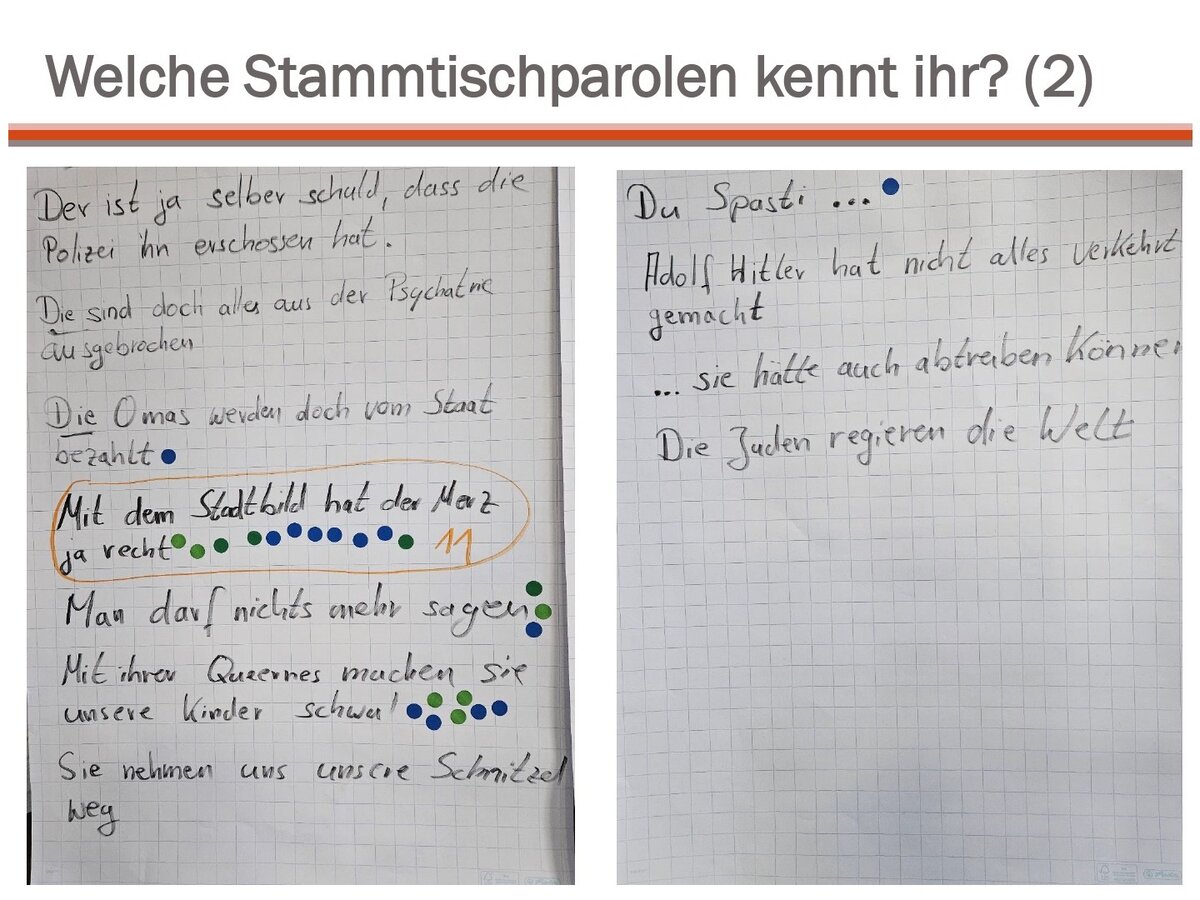 Welche Stammtischparolen kennt ihr? (2)
Der ist ja selber schuld, dass die
Polizei ihn erschossen hat.
Die sind doch alles aus der Psychatrie
ausgebrochen
Die Omas werden doch vom Staat
bezahlt
Mit dem Stadtbild hat der Merz
ja recht 11
Man darf nichts mehr sagen
Mit ihrer Queernes machen sie
unsere Kinder schwul
Sie nehmen uns unsere Schnitzel
weg
Du Spasti ...
Adolf Hitler hat nicht alles verkehrt
gemacht
... sie hätte auch abtreiben können
Die Juden regieren die Welt